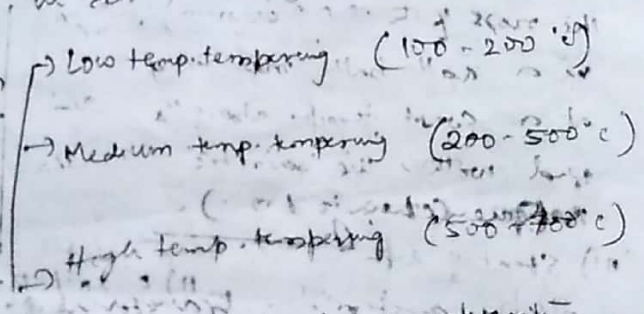 → Low temp. tempering (100 - 200 °C)
→ Medium temp. tempering (200 - 500°C)
→ High temp. tempering (500 - °C)